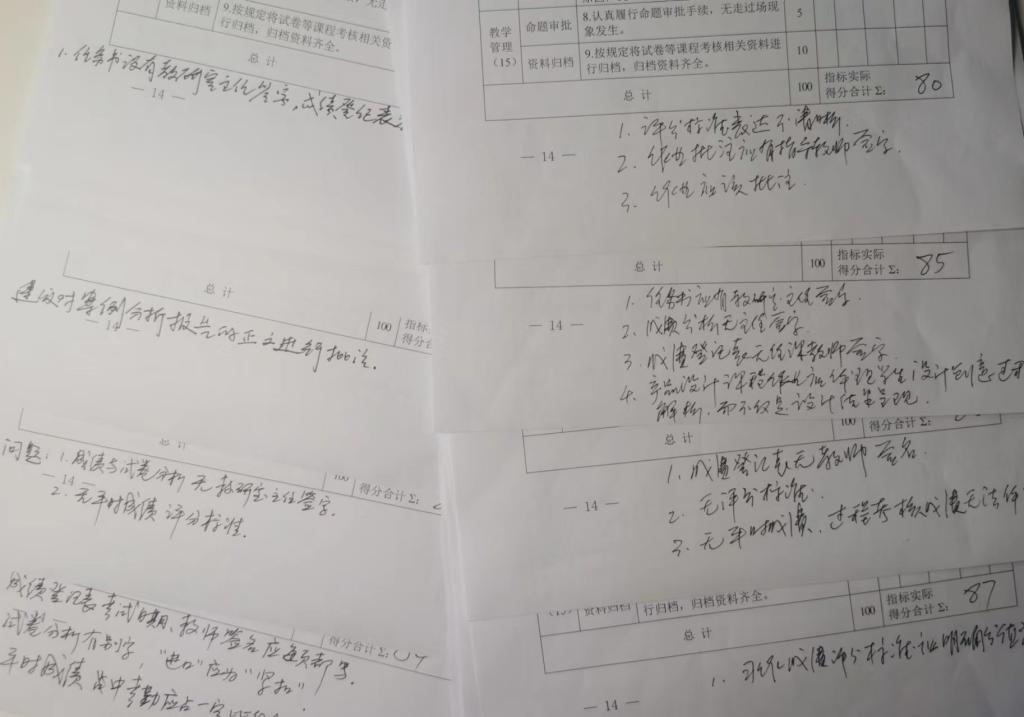 资料归档
9.按规定将试卷等课程考核相关资
行归档，归档资料齐全。
总 计
1.任务书没有教研室主任签字，成绩登记表
— 14 —
总 计
100
指标
建议对案例分析报告的正文进行批注.
— 14 —
总 计
100
得分合计Σ:
问题：1.成绩与试卷分析无教研室主任签字.
— 14 —
2.无平时成绩评分标准.
得分合计Σ:
成绩登记表考试日期、教师签名应
试卷分析有别字，" "应为"紧扣".
平时成绩 其中考勤应占一定
教学
管理
（15）
命题审批
8.认真履行命题审批手续，无走过场现
象发生。
5
资料归档
9.按规定将试卷等课程考核相关资料进
行归档，归档资料齐全。
10
总 计
100
指标实际
得分合计Σ:
80
1. 评分标准表达不清晰.
— 14 —
2. 作业批注应有指导教师签字.
3. 作业应该批注.
总 计
100
指标实际
得分合计Σ:
85
1. 任务书应有教研室主任签字.
— 14 —
2. 成绩分析无主任签字.
3. 成绩登记表无任课教师签字.
4. 产品设计课程作业应体现学生设计创意过程
解析，而不仅是设计结果呈现.
总 计
100
得分合计Σ:
1. 成绩登记表无教师签名.
— 14 —
2. 无评分标准.
3. 无平时成绩、过程考核成绩无法体
（15）
资料归档
行归档，归档资料齐全。
总 计
100
指标实际
得分合计Σ:
87
1. 成绩评分标准应明确分值
— 14 —